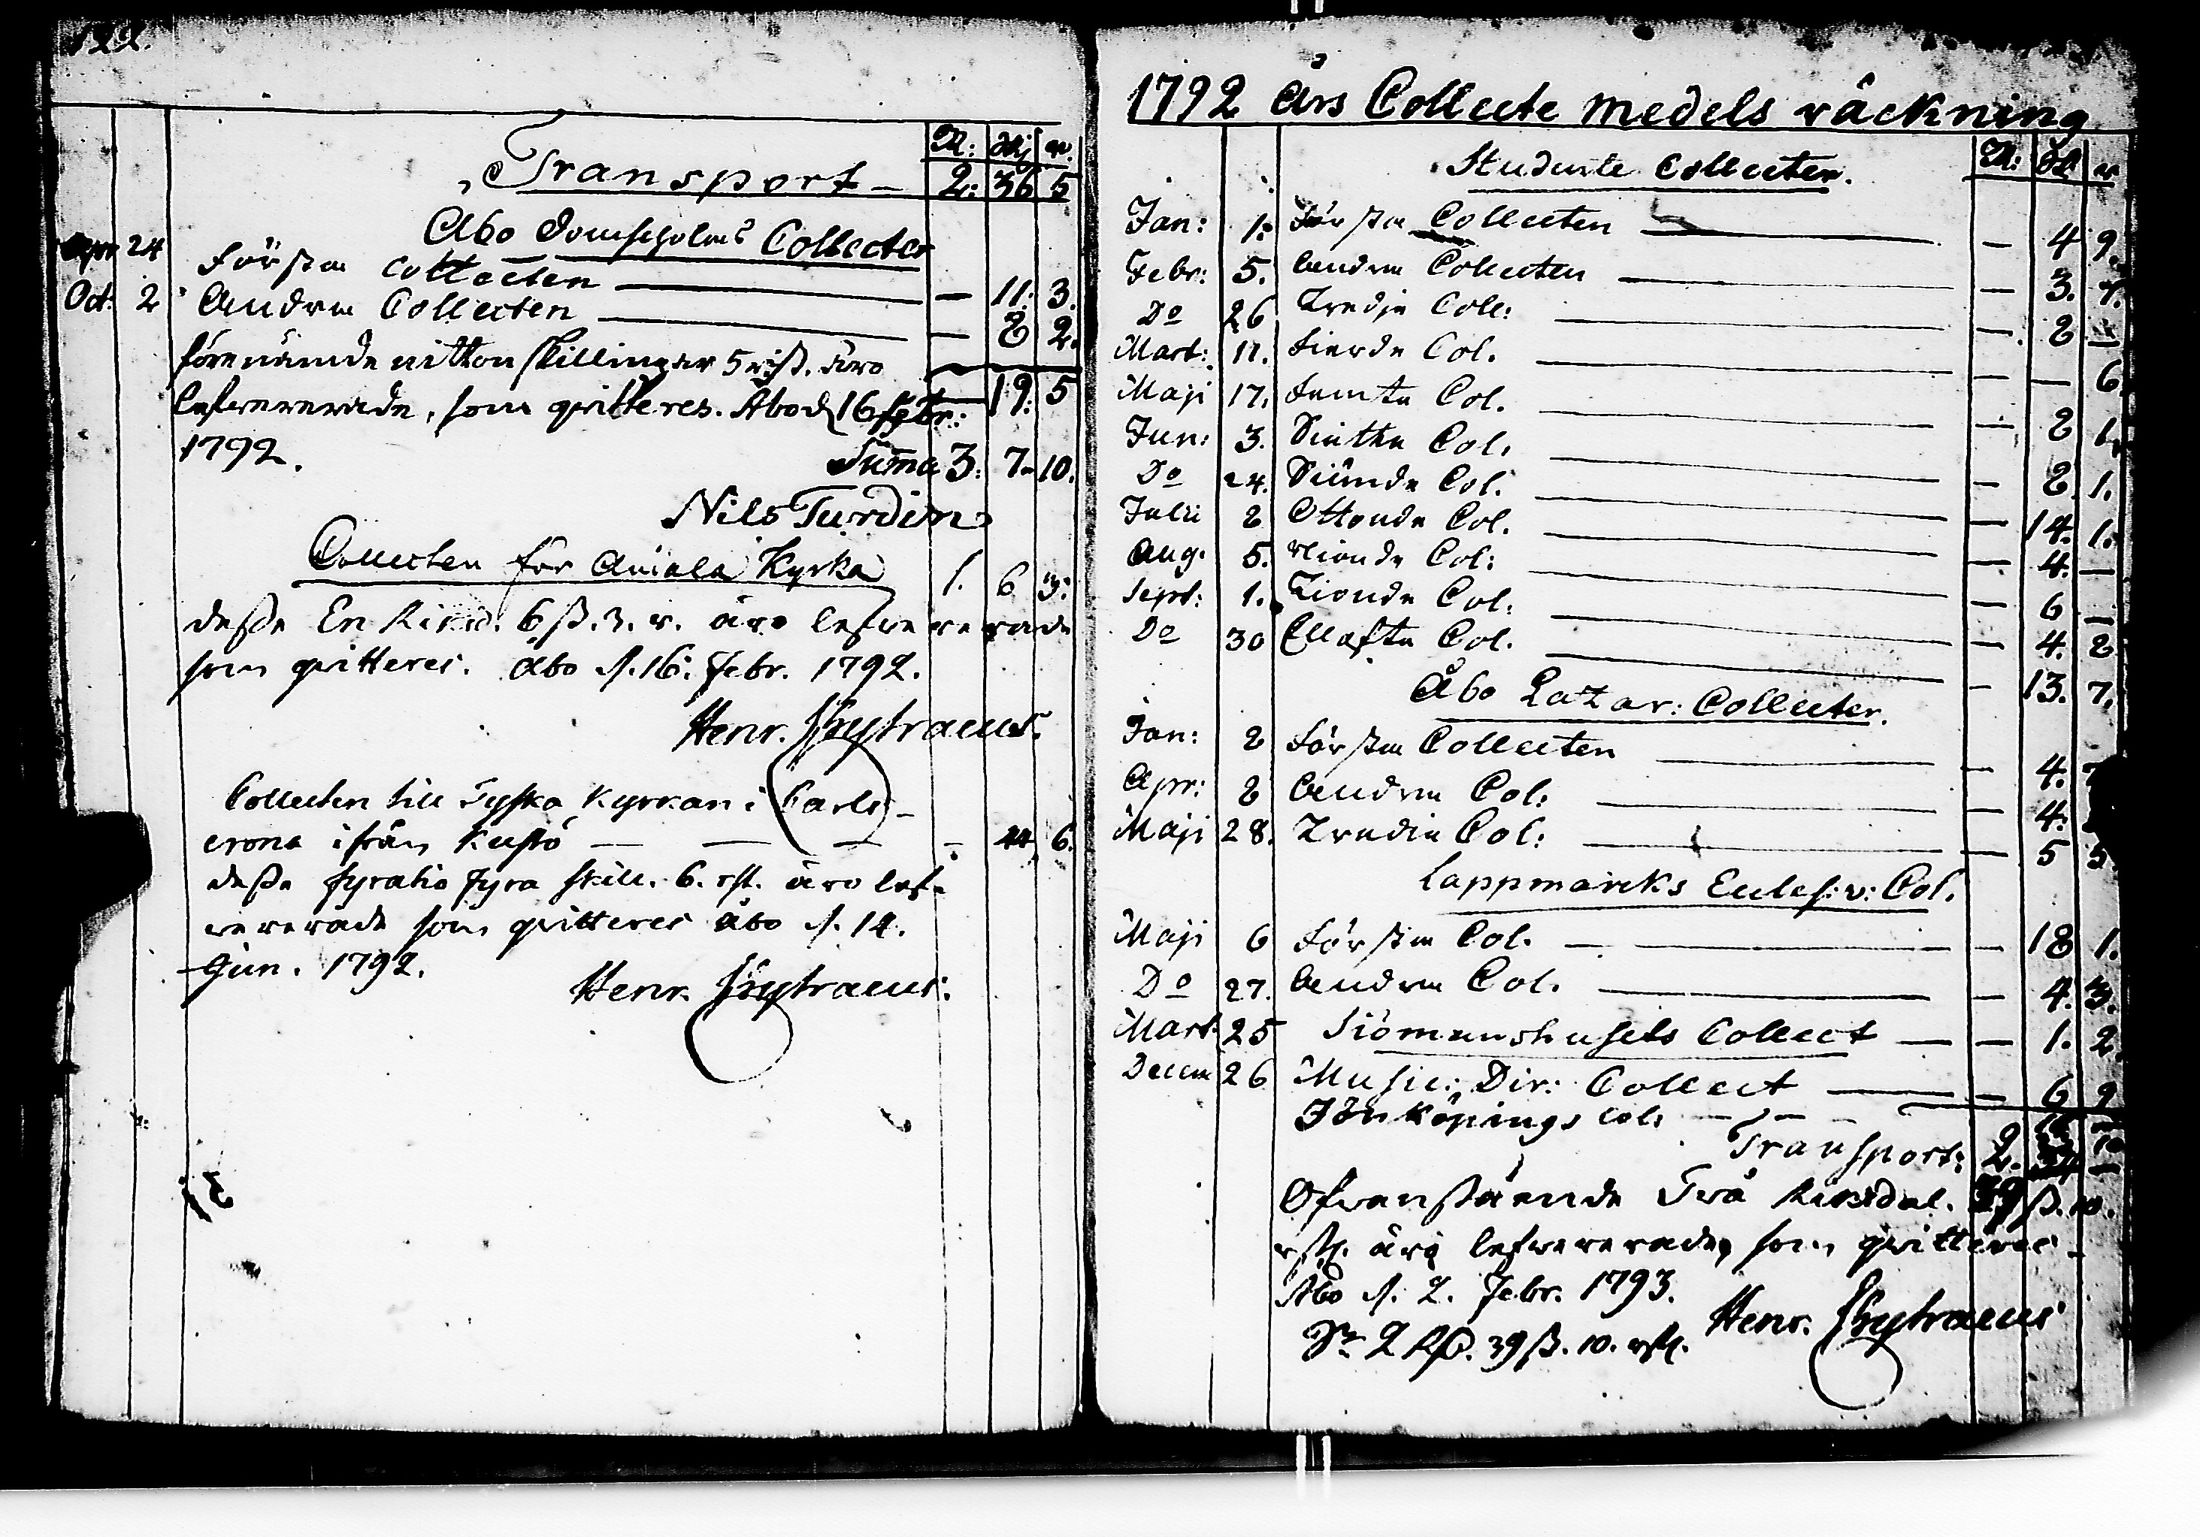 122.
R: sk: r.
Transport — 2: 36 5
Åbo Domscholæs Collecter
Apr 24 Första Collecten — 11. 3.
Oct: 2 Andra Collecten — 8 2.
förenämde nitton skillingar 5 rst. äro 19. 5
lefvererade, som qvitteres. Åbo d. 16 Febr:
1792. Summa 3: 7. 10.
Nils Turdin
Collecten för Aniala Kyrka 1. 6 3:
desse En Riksd. 6 ß. 3. r. äro lefvererade
som qvitteres. Åbo d. 16. Febr. 1792.
Henr.
Collecten till Tyska Kyrkan i Carls-
crona ifrån Kustö — — — 44 6.
desse fyratio fyra skill. 6. rst. äro lef-
vererade som qvitteres Åbo d. 14.
Jun. 1792.
Henr.
1792 Års Collecte medels räckning
R: sk r
Studente Collecter.
Jan: 1. Första Collecten — 4 9.
Febr: 5. Andra Collecten — 3. 7.
Do 26 Tredje Coll: — 8 —
Mart: 11. Fierde Col. — 6.
Maji 17. Femte Col. — 8 1.
Jun: 3. Siette Col. — 8. 1.
Do 24. Siunde Col. — 14. 1.
Julii 8 Ottonde Col. — 4. —
Aug. 5. Nionde Col: — 6 —
Sept: 1. Tionde Col. — 4. 8
Do 30 Ellofte Col. — 13. 7.
Åbo Lazar: Collecter.
Jan: 8 Första Collecten — 4.
Apr: 8 Andra Col: — 4.
Maji 28. Tredie Col: — 5 5
Lappmarcks Eccles: v: Col.
Maji 6 Första Col. — 18 1.
Do 27. Andra Col. — 4. 3.
Mart. 25 Siömanshusets Collect — 1. 2.
Decem 26 Music: Dir: Collect — 6 9
Jönköpings Col: — —
Transport: 2.
Ofvanstående Två Riksdal. 39 ß. 10.
rst. äro lefvererade, som qvitteres
Åbo d. 2. Febr. 1793.
Henr.
2 Rd. 39 ß. 10. rst.